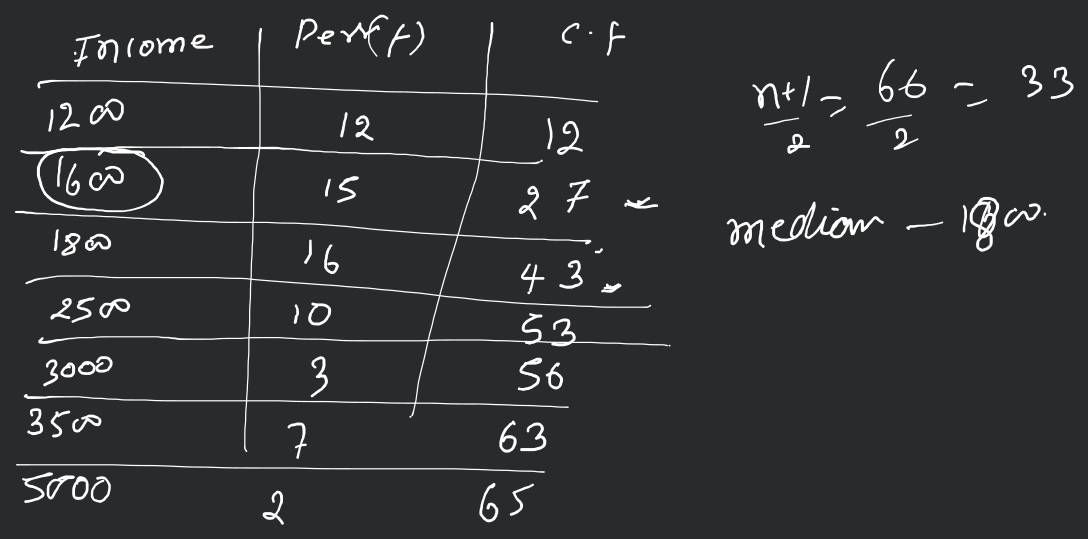 Income Per(f) C.f
1200 12 12
1600 15 27
1800 16 43
2500 10 53
3000 3 56
3500 7 63
5000 2 65
n+1/2 = 66/2 = 33
median - 1800.